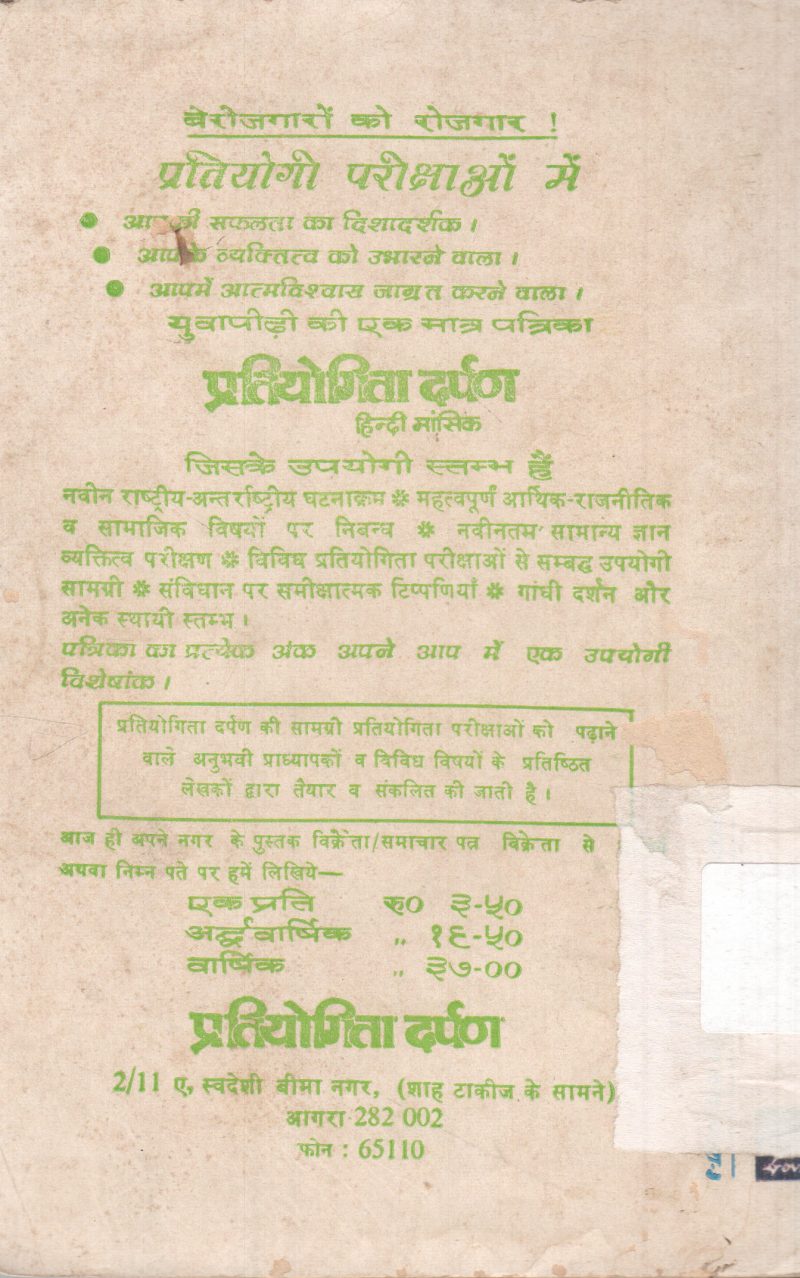 बेरोजगारों को रोजगार !
प्रतियोगी परीक्षाओं में
● आपकी सफलता का दिशादर्शक ।
● आपके व्यक्तित्व को उभारने वाला ।
● आपमें आत्मविश्वास जाग्रत करने वाला ।
युवापीढ़ी की एक मात्र पत्रिका
प्रतियोगिता दर्पण
हिन्दी मांसिक
जिसके उपयोगी स्तम्भ हैं
नवीन राष्ट्रीय-अन्तर्राष्ट्रीय घटनाक्रम ❋ महत्वपूर्ण आर्थिक-राजनीतिक
व सामाजिक विषयों पर निबन्ध ❋ नवीनतम सामान्य ज्ञान
व्यक्तित्व परीक्षण ❋ विविध प्रतियोगिता परीक्षाओं से सम्बद्ध उपयोगी
सामग्री ❋ संविधान पर समीक्षात्मक टिप्पणियाँ ❋ गांधी दर्शन और
अनेक स्थायी स्तम्भ ।
पत्रिका का प्रत्येक अंक अपने आप में एक उपयोगी
विशेषांक ।
प्रतियोगिता दर्पण की सामग्री प्रतियोगिता परीक्षाओं को पढ़ाने
वाले अनुभवी प्राध्यापकों व विविध विषयों के प्रतिष्ठित
लेखकों द्वारा तैयार व संकलित की जाती है ।
आज ही अपने नगर के पुस्तक विक्रेता/समाचार पत्र विक्रेता से
अथवा निम्न पते पर हमें लिखिये—
एक प्रति रु० ३-५०
अर्द्धवार्षिक ,, १९-५०
वार्षिक ,, ३७-००
प्रतियोगिता दर्पण
2/11 ए, स्वदेशी बीमा नगर, (शाह टाकीज के सामने)
आगरा 282 002
फोन : 65110